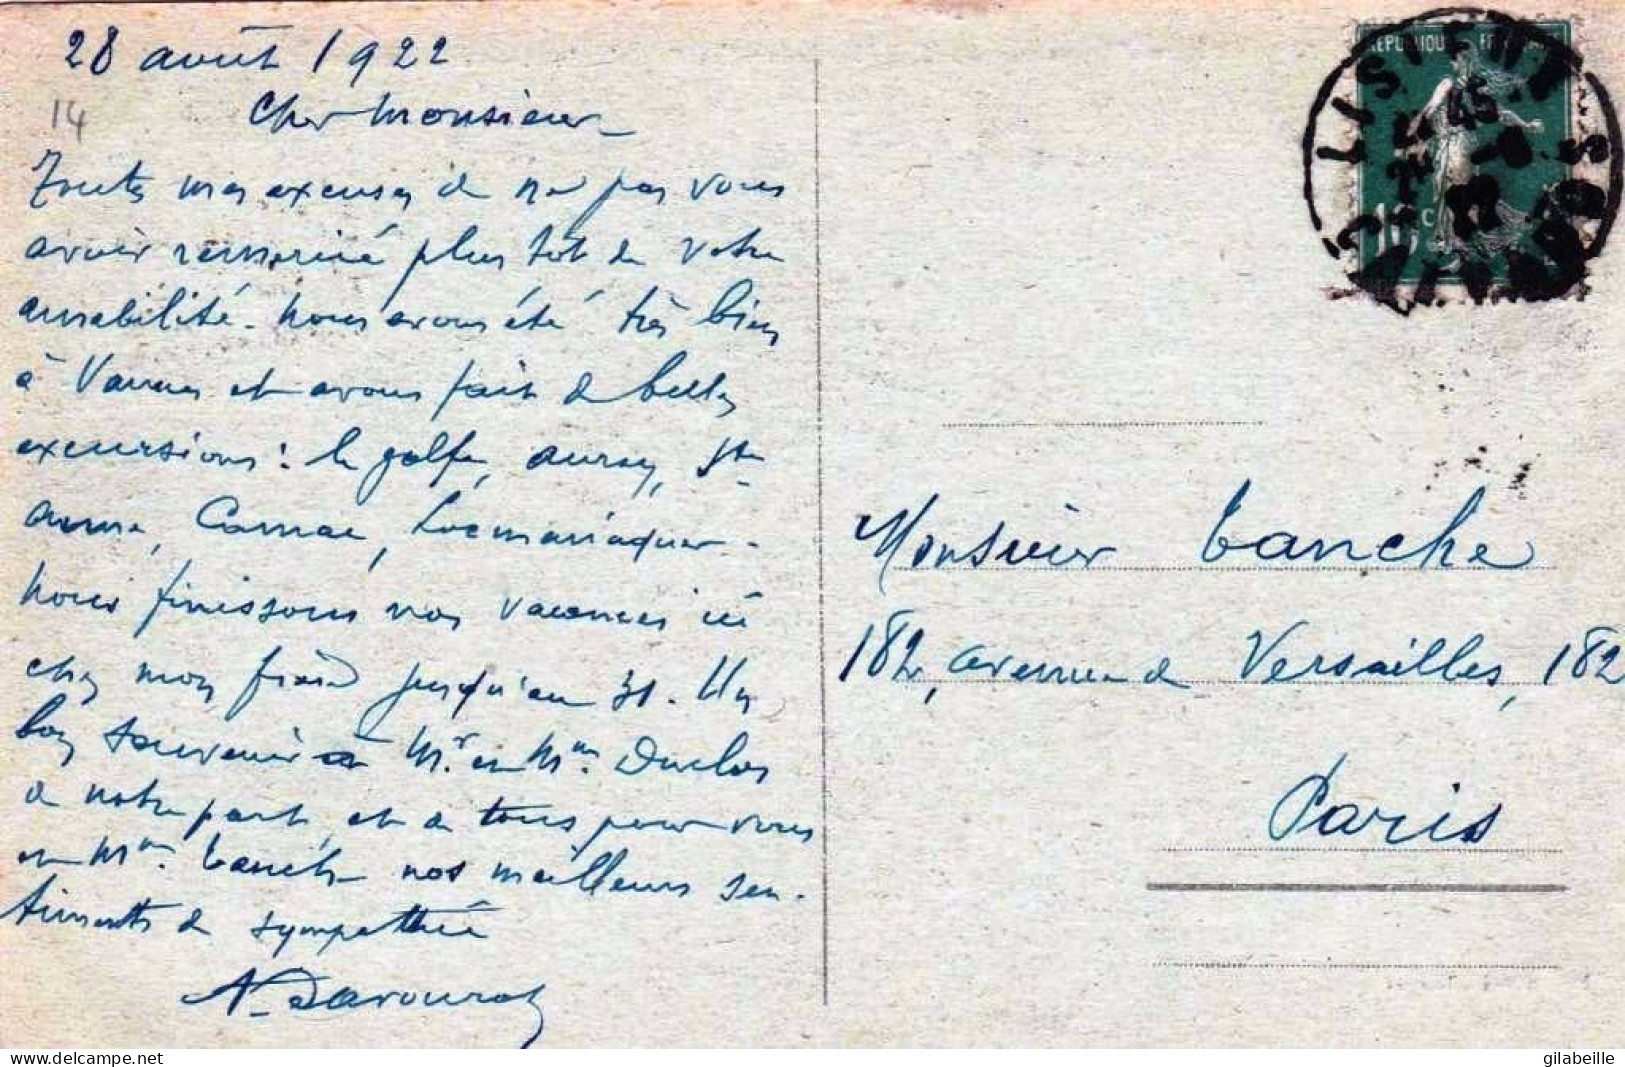 28 août 1922
14
Cher Monsieur
Toutes mes excuses de ne pas vous
avoir remercié plus tôt de votre
amabilité. Nous avons été très bien
à Vannes et avons fait de belles
excursions : le golfe, Auray, Ste
Anne, Carnac, Locmariaquer.
Nous finissons nos vacances ici
chez mon frère jusqu'au 31. Un
bon souvenir à Mr. et Mme. Duclos
de notre part, et de tous pour vous
et Mme. Tanche nos meilleurs sen-
timents de sympathie
REPUBLIQUE FRANÇAISE
10c
Monsieur Tanche
182, avenue de Versailles, 182
Paris
gilabeille